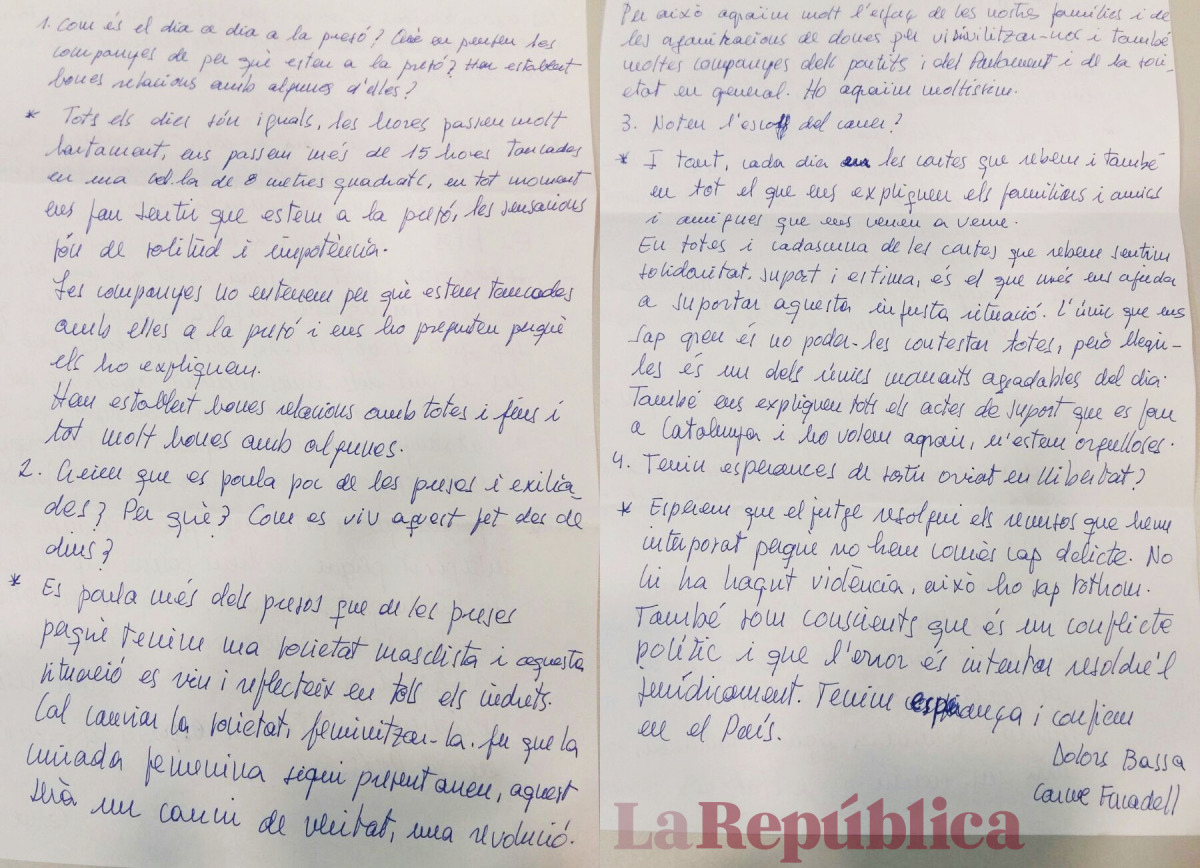 1. Com és el dia a dia a la presó? Què en pensen les
companyes de per què esteu a la presó? Heu establert
bones relacions amb algunes d'elles?
* Tots els dies són iguals, les hores passen molt
lentament, ens passem més de 15 hores tancades
en una cel·la de 8 metres quadrats, en tot moment
ens fan sentir que estem a la presó, les sensacions
són de solitud i impotència.
Les companyes no entenem per què estem tancades
amb elles a la presó i ens ho pregunten perquè
els ho expliquem.
Hem establert bones relacions amb totes i fins i
tot molt bones amb algunes.
2. Creieu que es parla poc de les preses i exilia-
des? Per què? Com es viu aquest fet des de
dins?
* Es parla més dels presos que de les preses
perquè tenim una societat masclista i aquesta
situació es viu i reflecteix en tots els indrets.
Cal canviar la societat, feminitzar-la. Fer que la
mirada femenina sigui present arreu, aquest
serà un camí de veritat, una revolució.
Per això agraïm molt l'esforç de les nostres famílies i de
les organitzacions de dones per visibilitzar-nos i també
moltes companyes dels partits i del Parlament i de la soci-
etat en general. Ho agraïm moltíssim.
3. Noteu l'escalf del carrer?
* I tant, cada dia en les cartes que rebem i també
en tot el que ens expliquen els familiars i amics
i amigues que ens venen a veure.
En totes i cadascuna de les cartes que rebem sentim
solidaritat, suport i estima, és el que més ens ajuda
a suportar aquesta injusta situació. L'únic que ens
sap greu és no poder-les contestar totes, però llegir-
les és un dels únics moments agradables del dia.
També ens expliquen tots els actes de suport que es fan
a Catalunya i ho volem agrair, n'estem orgulloses.
4. Teniu esperances de sortir aviat en llibertat?
* Esperem que el jutge resolgui els recursos que hem
interposat perquè no hem comès cap delicte. No
hi ha hagut violència, això ho sap tothom.
També som conscients que és un conflicte
polític i que l'error és intentar resoldre'l
jurídicament. Tenim esperança i confiem
en el País.
Dolors Bassa
Carme Forcadell
LaRepública